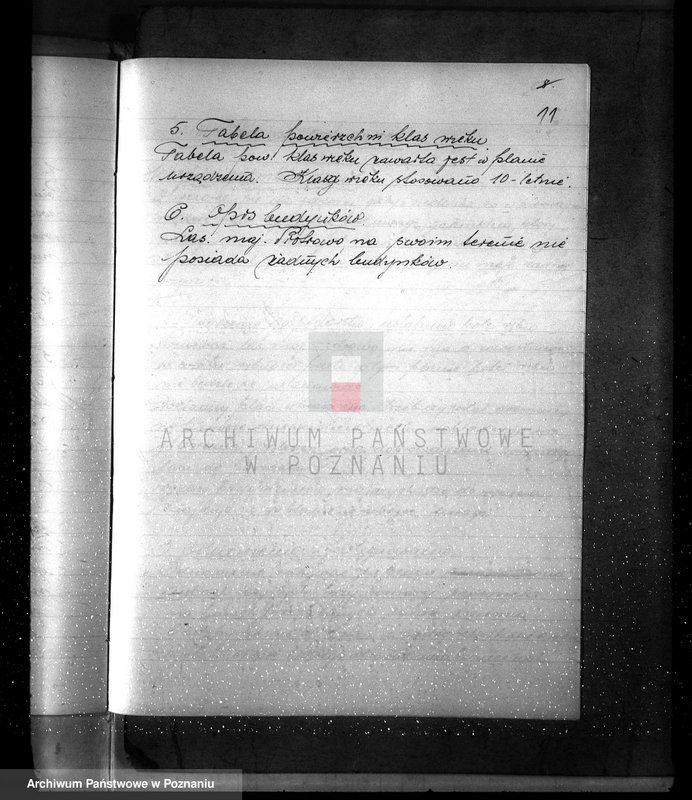 8.
11
5. Tabela powierzchni klas wieku
Tabela pow. klas wieku zawarta jest w planie
urządzenia. Klasy wieku stosowano 10-letnie.
6. Opis budynków
Las. maj. Piotrowo na swoim terenie nie
posiada żadnych budynków.
ARCHIWUM PAŃSTWOWE
W POZNANIU
Archiwum Państwowe w Poznaniu